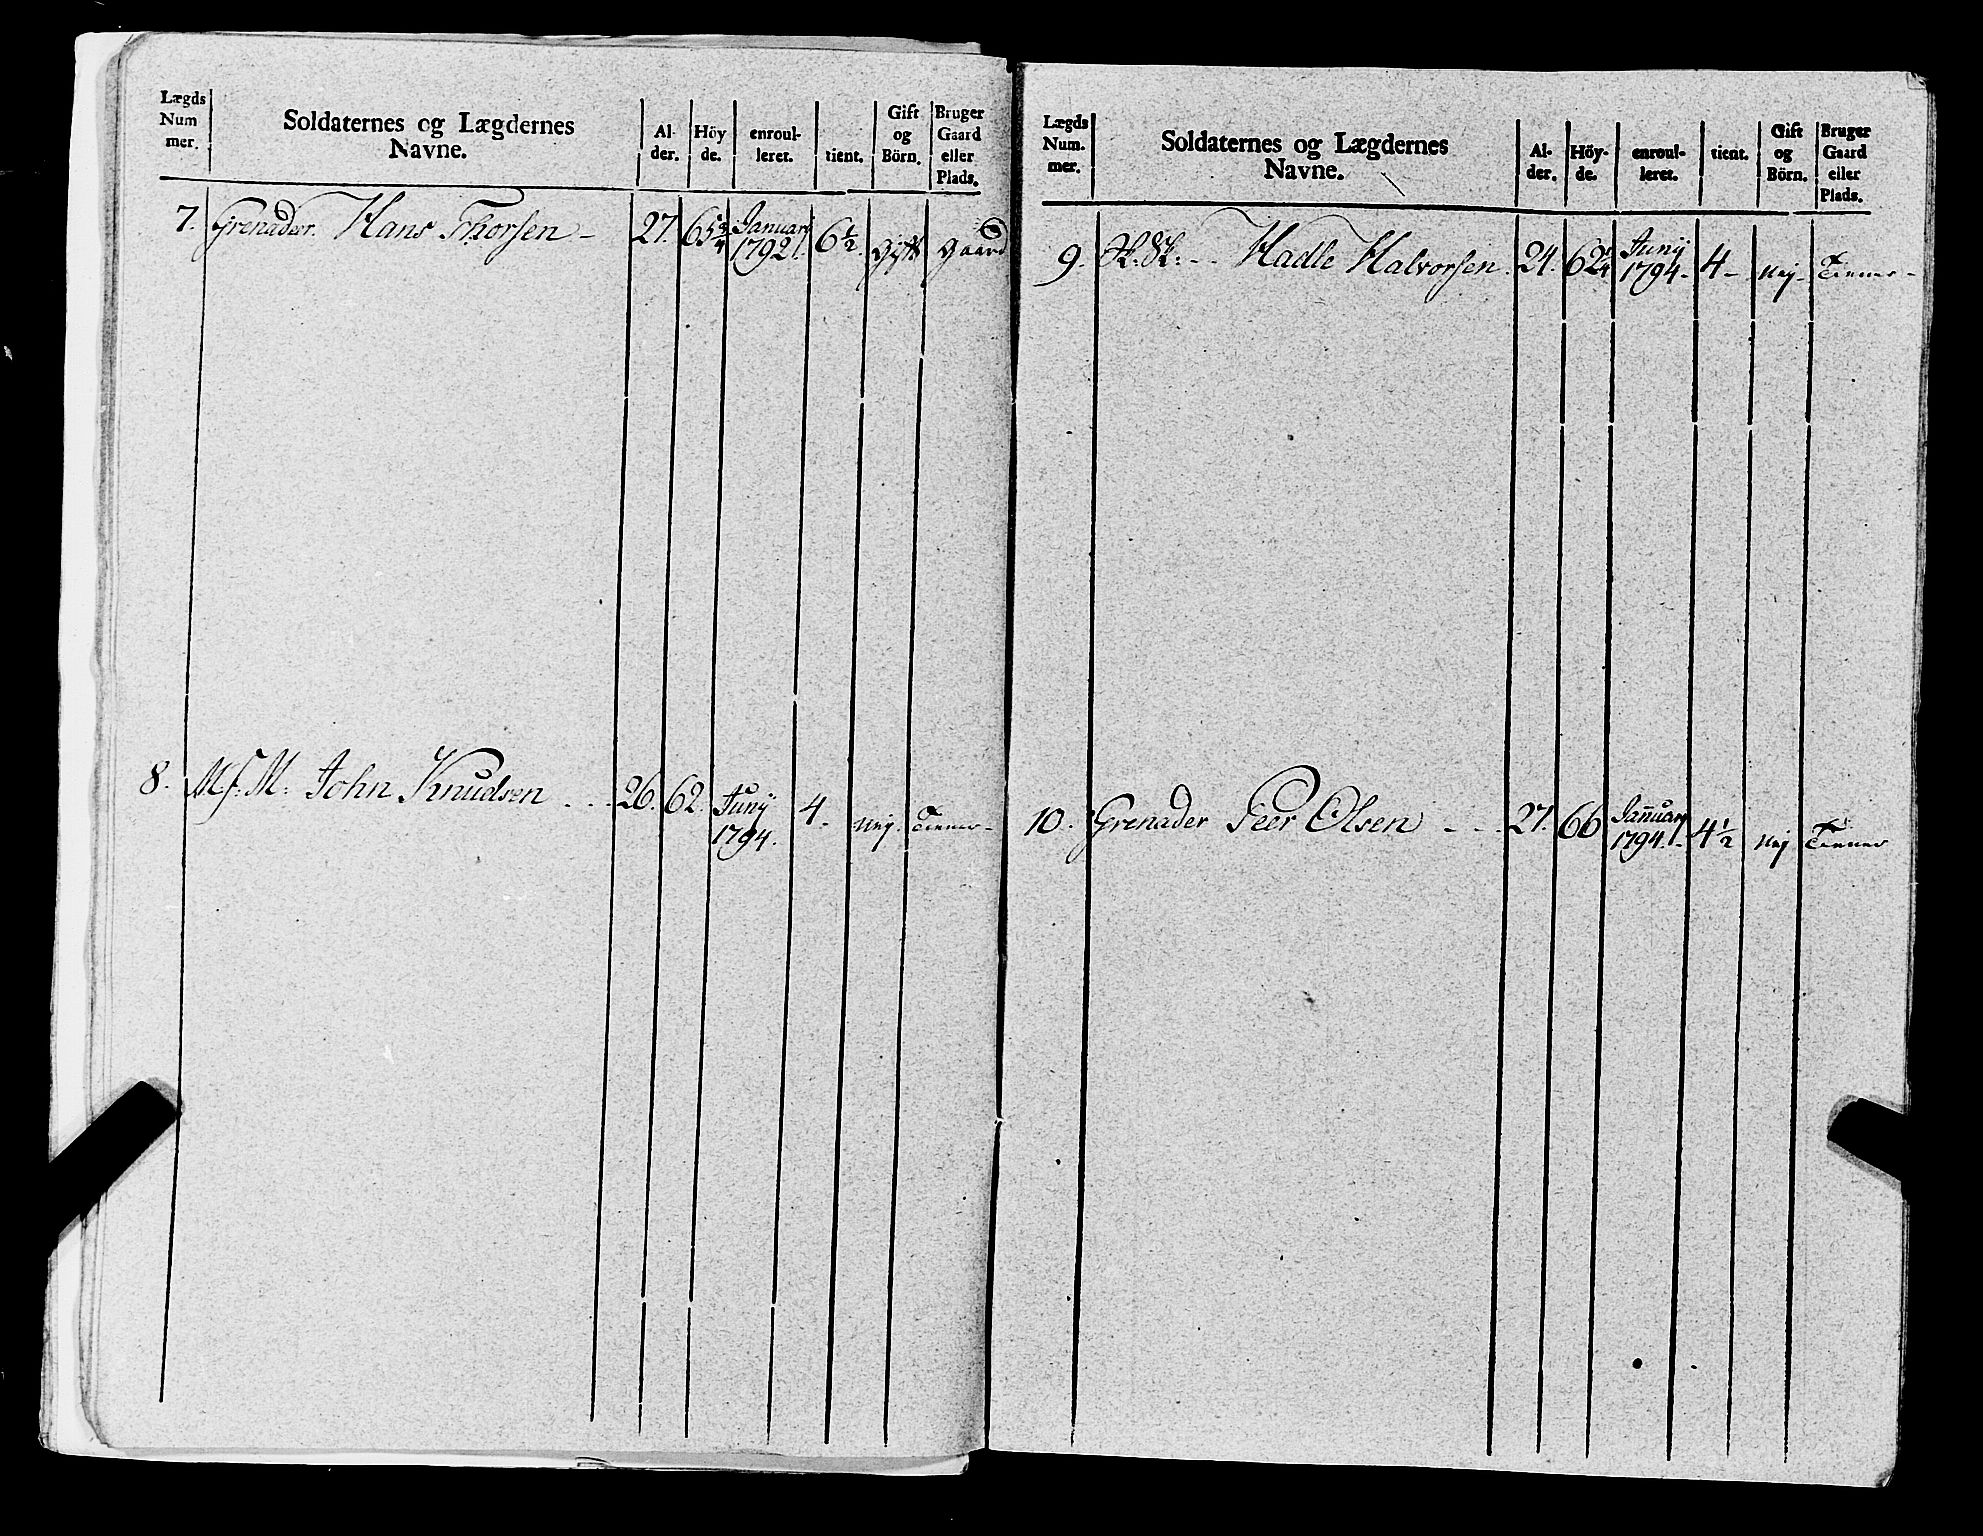 Lægds Num mer. Soldaternes og Lægdernes Navne. Al- der. Höy de. enroul- leret. tient. Gift og Börn. Bruger Gaard eller Plads.
7. Grenadeer. Hans Thorsen - 27. 65 3/4 Januarj 1792. 6 1/2. Gift Gaard
8. M: John Knudsen . . . 26. 62. Junij 1794. 4. Nej. Tienner -
Lægds Num. mer. Soldaternes og Lægdernes Navne. Al- der. Höy- de. enroul- leret. tient. Gift og Börn. Bruger Gaard eller Plads.
9. Hadle Halvorsen. 24. 62 1/4 Junij 1794 - 4 - Nej - Tienner -
10. Grenader Peer Olsen - - - 27. 66 Januarj 1794. 4 1/2 Nej Tienner